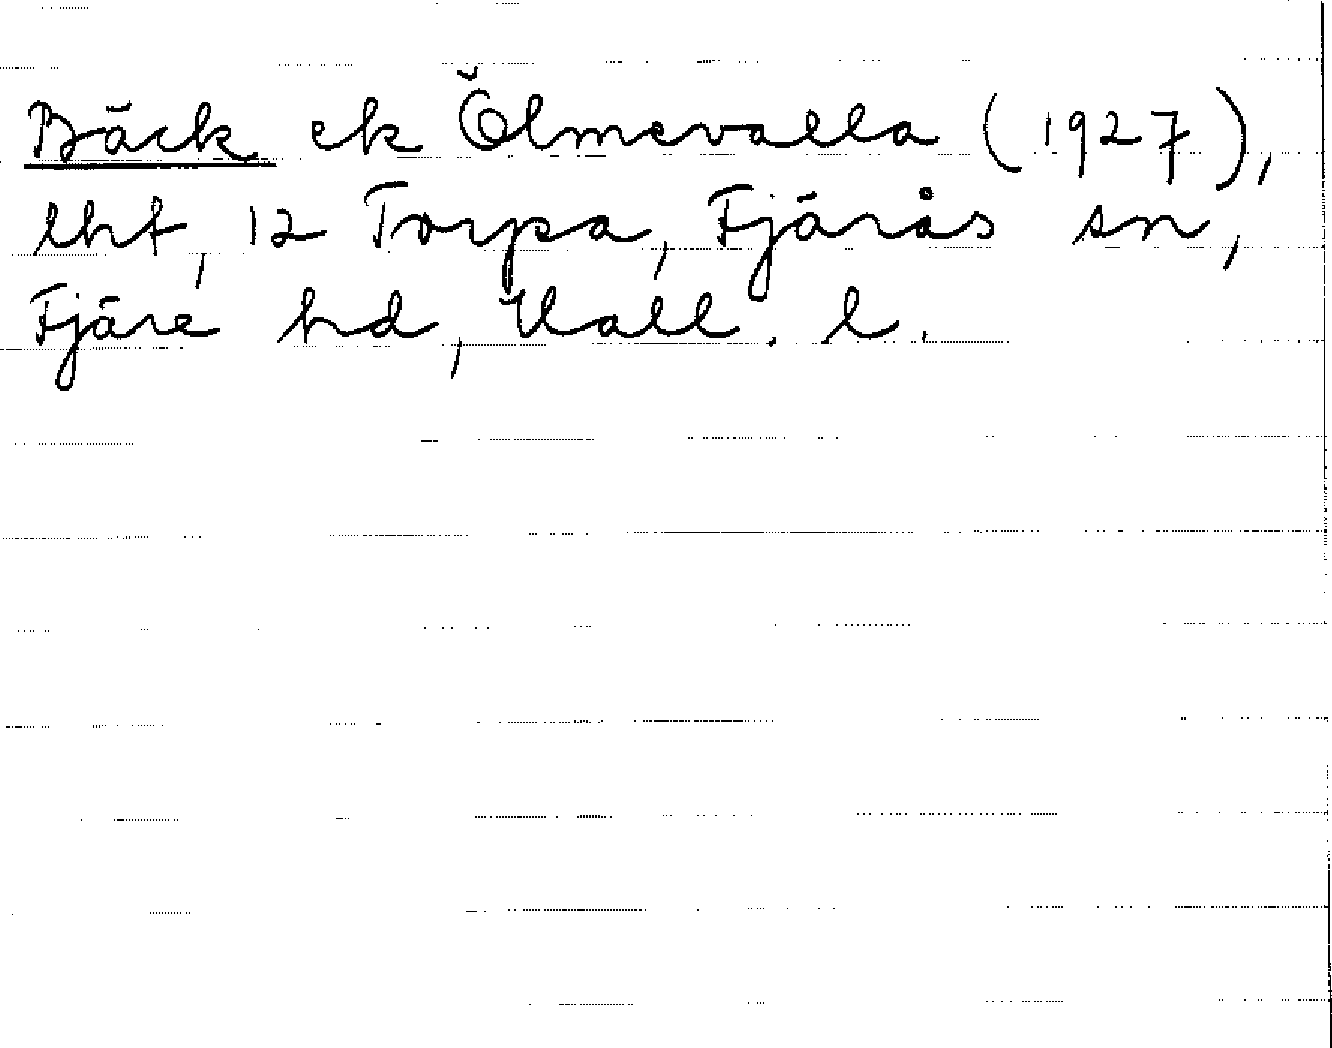 Bäck ek Ölmevalla (1927),
lht, 12 Torpa, Fjärås sn,
Fjäre hd, Hall. l.